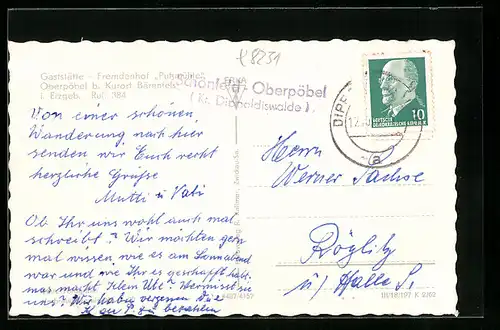 x 8231
Gaststätte - Fremdenhof „Putzmühle"
Oberpöbel b. Kurort Bärenfels
i. Erzgeb. Ruf 384
Schönfeld-Oberpöbel
(Kr. Dippoldiswalde).
DIPP
10
DEUTSCHE
DEMOKRATISCHE REPUBLIK
a
Von einer schönen
Wanderung nach hier
senden wir Euch recht
herzliche Grüße
Mutti u Vati
Ob Ihr uns wohl auch mal
schreibt? Wir möchten gern
mal wissen, wie es am Sonnabend
war und wie Ihr es geschafft habt.
was macht Klein Ute? Vermisst sie
uns? Wir haben vergessen die
zu bezahlen
Herrn
Werner Sachse
Röglitz
ü/ Halle S.
III/18/197 K 2/62